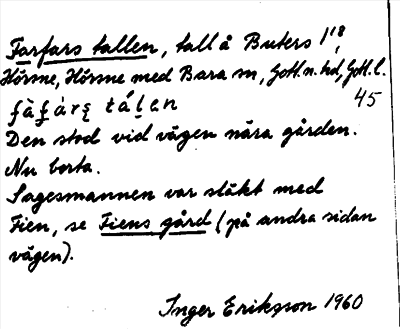 Farfars tallen, tall å Buters 1¹⁸,
Hörsne, Hörsne med Bara sn, Gotl. n. hd, Gotl. l.
45
Den stod vid vägen nära gården.
Nu borta.
Sagesmannen var släkt med
Fien, se Fiens gård (på andra sidan
vägen).
Inger Eriksson 1960